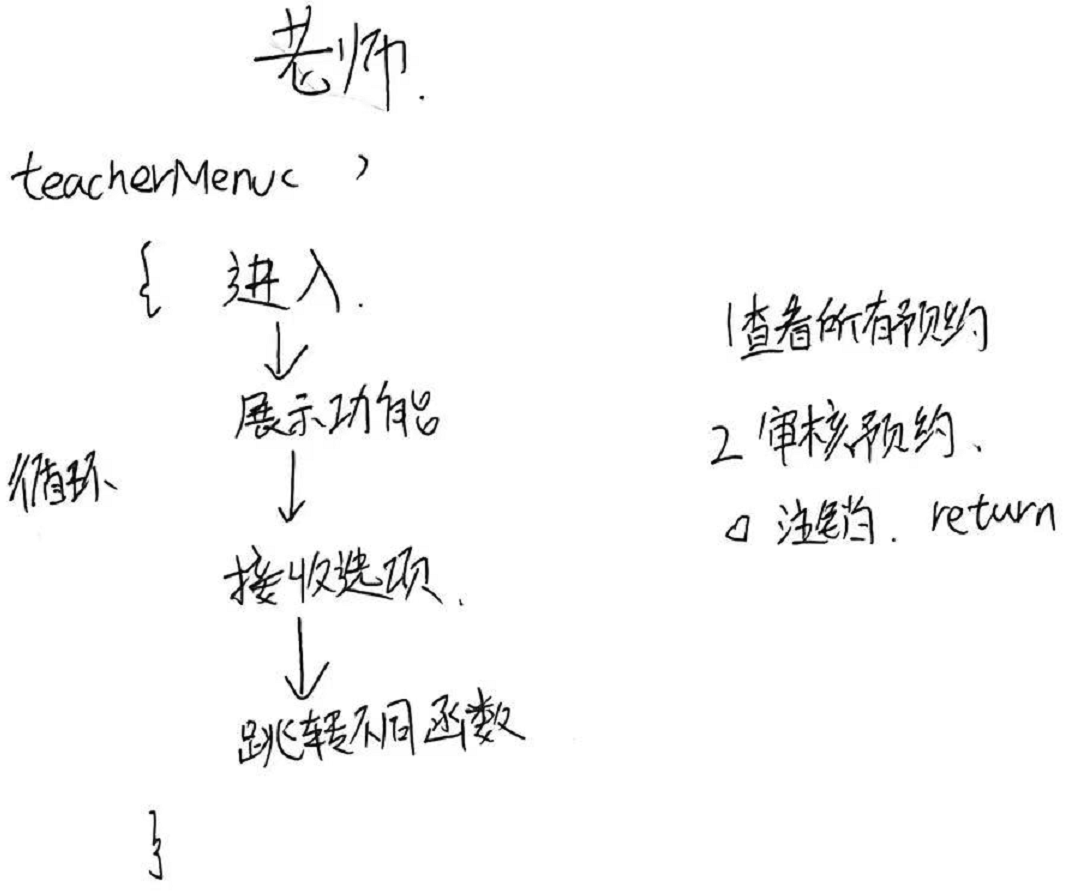 老师.
teacherMenu( )
{ 进入.
↓
展示功能
循环
↓
接收选项.
↓
跳转不同函数
}
1查看所有预约
2 审核预约、
0 注销. return